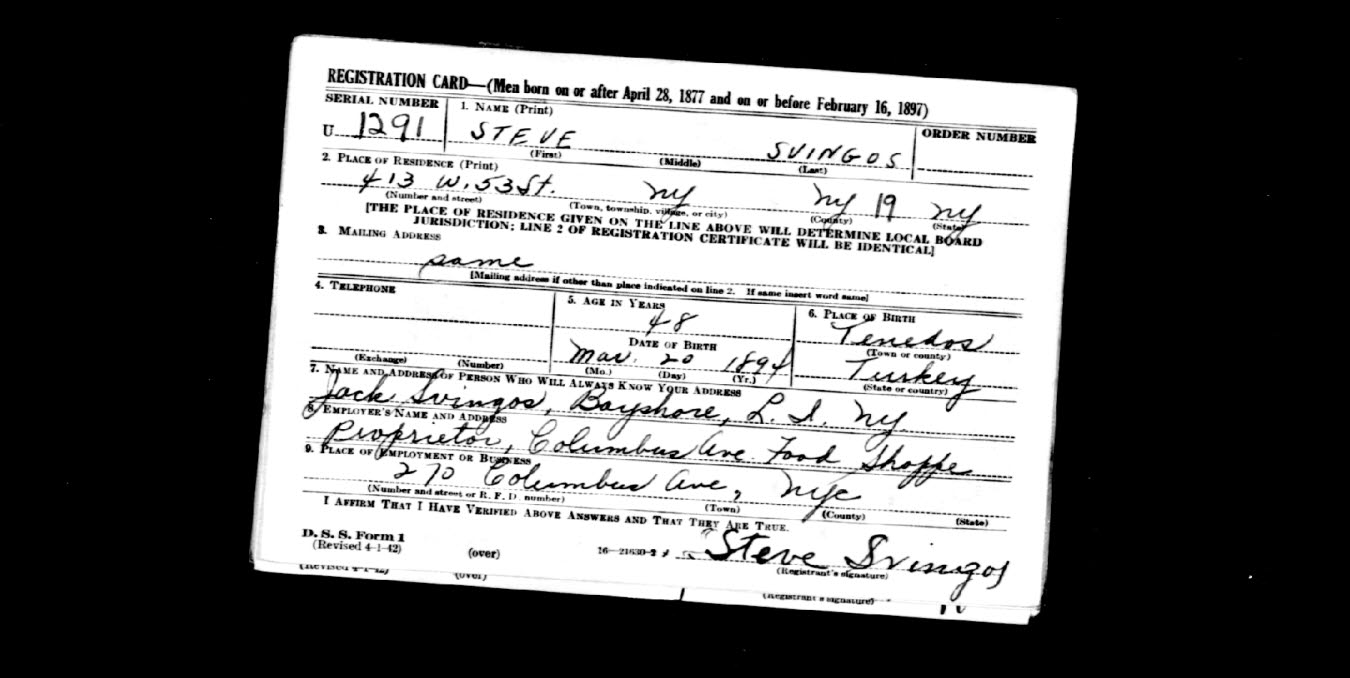 REGISTRATION CARD—(Men born on or after April 28, 1877 and on or before February 16, 1897)
SERIAL NUMBER 1. NAME (Print) ORDER NUMBER
U 1291 STEVE SVINGOS
(First) (Middle) (Last)
2. PLACE OF RESIDENCE (Print)
413 W. 53 St. NY NY 19 NY
(Number and street) (Town, township, village, or city) (County) (State)
[THE PLACE OF RESIDENCE GIVEN ON THE LINE ABOVE WILL DETERMINE LOCAL BOARD
JURISDICTION; LINE 2 OF REGISTRATION CERTIFICATE WILL BE IDENTICAL]
3. MAILING ADDRESS
same
[Mailing address if other than place indicated on line 2. If same insert word same]
4. TELEPHONE 5. AGE IN YEARS 6. PLACE OF BIRTH
48 Tenedos
DATE OF BIRTH (Town or county)
Mar. 20 1894 Turkey
(Exchange) (Number) (Mo.) (Day) (Yr.) (State or country)
7. NAME AND ADDRESS OF PERSON WHO WILL ALWAYS KNOW YOUR ADDRESS
Jack Svingos, Bayshore, L. I. NY
8. EMPLOYER'S NAME AND ADDRESS
Proprietor, Columbus Ave. Food Shoppe
9. PLACE OF EMPLOYMENT OR BUSINESS
270 Columbus Ave, NYC
(Number and street or R. F. D. number) (Town) (County) (State)
I AFFIRM THAT I HAVE VERIFIED ABOVE ANSWERS AND THAT THEY ARE TRUE.
D. S. S. Form 1
(Revised 4-1-42) (over) 16—21630-2 Steve Svingos
(Registrant's signature)
(Revised 4-1-42) (over) (Registrant's signature)